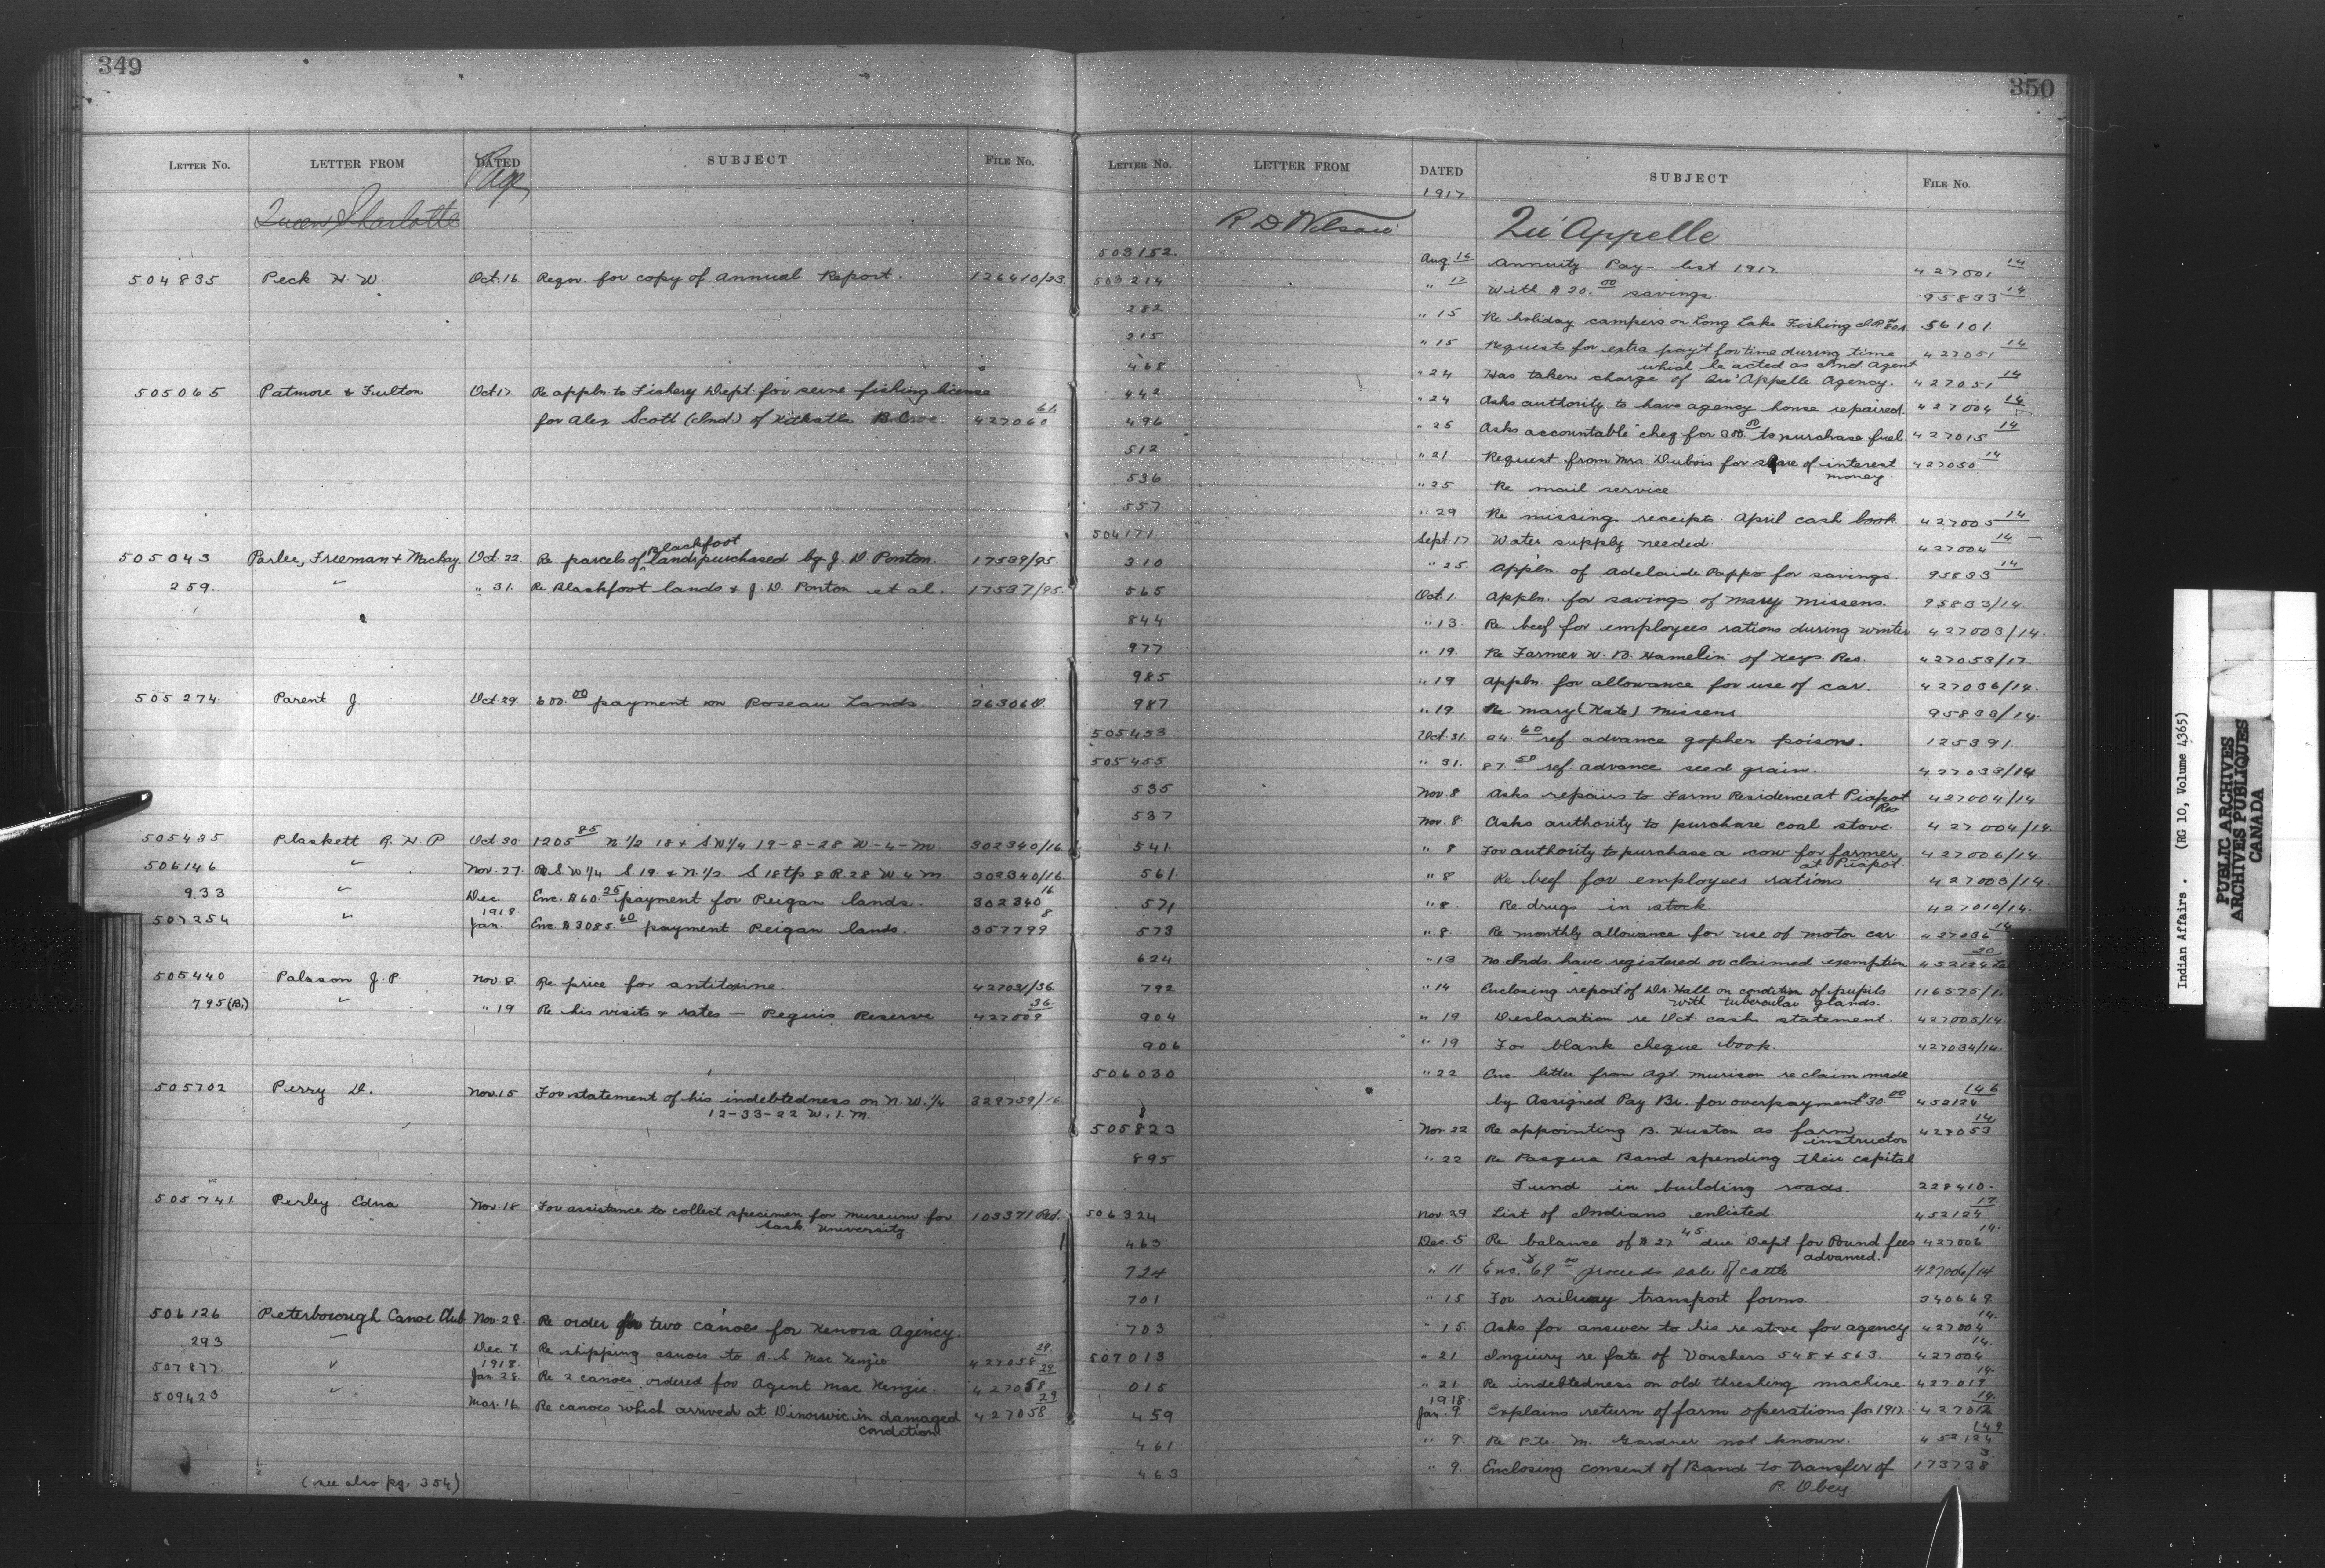 349
LETTER No. LETTER FROM DATED SUBJECT FILE No.
Page
Queen Charlotte
504835 Peck H. W. Oct. 16 Reqn. for copy of Annual Report. 126410/23.
505065 Patmore & Fulton Oct 17 Re appln. to Fishery Dept. for seine fishing license
for Alex Scott (Ind) of Kitkatla 427060 61
505043 Parlee, Freeman & Mackay. Oct. 22. Re parcels of Blackfoot lands purchased by J. D. Ponton. 17539/95.
259. " " 31. Re Blackfoot lands & J. D. Ponton et al. 17537/95.
505274. Parent J Oct. 29 600.00 payment on Roseau Lands. 26306
505435 Plaskett R. H. P Oct 30 1205 85 N. 1/2 18 & S.W 1/4 19-8-28 W-4-M. 302340/16
506146 " Nov. 27. S W 1/4 S. 19. & N. 1/2. S 18 tp 8 R. 28 W. 4 M 302340/16
933 " Dec Enc. $60.25 payment for Peigan lands. 302340 16
507254 " 1918. Jan. Enc. $3085 60 payment Peigan lands. 357799 8
505440 Palsson J. P. Nov. 8. Re price for antitoxine. 427031/36
795 (B.) " " 19 Re his visits & rates — Peguis Reserve 427009 36.
505702 Perry D. Nov. 15 For statement of his indebtedness on N. W. 1/4 329759/16
12-33-22 W. 1. M.
505741 Perley Edna Nov. 18 For assistance to collect specimen for museum for 103371 Pd.
Sask. University
506126 Peterborough Canoe Club Nov. 28. Re order for two canoes for Kenora Agency.
293 " Dec 7. Re shipping canoes to R. S. Mac Kenzie 427058 29.
507877. " 1918. Jan 28. Re 2 canoes ordered for Agent Mac Kenzie. 427058 29
509423 " Mar. 16. Re canoes which arrived at Dinorwic in damaged 427058 29
condition
(see also pg. 354)
350
LETTER No. LETTER FROM DATED SUBJECT FILE No.
1917
R D Nelson Qu'Appelle
503152. Aug 14 Annuity Pay-list 1917. 427001 14
503214 " 17 With $20.00 savings. 95833 14
282 " 15 Re holiday campers on Long Lake Fishing I.R. 56101.
215 " 15 Requests for extra pay't for time during time 427051 14
which he acted as Ind. Agent
468 " 24 Has taken charge of Qu'Appelle Agency. 427051 14
442. " 24 Asks authority to have agency house repaired. 427004 14
496 " 25 Asks accountable cheq for 300.00 to purchase fuel. 427015 14
512 " 21 Request from Mrs Dubois for share of interest 427050 14
money.
536 " 25 Re mail service.
557 " 29 Re missing receipts. April cash book 427005 14
504171. Sept. 17 Water supply needed. 427004 14
310 " 25. Appln. of Adelaide Pappo for savings. 95833 14
565 Oct. 1. Appln. for savings of Mary Missens. 95833/14.
844 " 13. Re. beef for employees rations during winter. 427003/14.
977 " 19. Re Farmer W. B. Hamelin of Keys Res. 427053/17.
985 " 19 Appln. for allowance for use of car. 427036/14.
987 " 19. Re Mary (Kate) Missens. 95833/14.
505453 Oct. 31. 24.60 ref. advance gopher poison. 125391.
505455. " 31. 87.50 ref. advance seed grain. 427033/14
535 Nov. 8 Asks repairs to Farm Residence at Piapot 427004/14
Res
537 Nov. 8 Asks authority to purchase coal stove. 427004/14.
541. " 8 For authority to purchase a cow for farmer 427006/14.
at Piapot.
561. " 8 Re beef for employees rations 427003/14.
571 " 8. Re drugs in stock. 427010/14.
573 " 8. Re monthly allowance for use of motor car. 427036 14
624 " 13 No Inds. have registered or claimed exemption 452124 20
792 " 14 Enclosing report of Dr. Hall on condition of pupils 116575/1.
with tubercular glands.
904 " 19 Declaration re Oct. cash statement. 427005/14
906 " 19 For blank cheque book. 427034/14.
506030 " 22 Enc. letter from Agt. Murison re claim made
by Assigned Pay Br. for overpayment $30.00 452124 146
505823 Nov. 22 Re appointing B. Huston as farm 427053 14.
instructor
895 " 22 Re Pasqua Band spending their capital
Fund in building roads. 228410.
506324 Nov. 29 List of Indians enlisted. 452124 17.
463 Dec. 5 Re balance of $27 45. due Dept for Pound fees 427006 14.
advanced.
724 " 11 Enc. $69 00 proceeds sale of cattle 427006/14
701 " 15 For railway transport forms 340669.
703 " 15. Asks for answer to his re stove for agency 427004 14.
507013 " 21 Inquiry re fate of Vouchers 548 & 563. 427004 14.
015 " 21. Re indebtedness on old threshing machine 427019 14.
459 1918. Jan. 9. Explains return of farm operations for 1917. 427012 14.
461 " 9. Re Pte. M. Gardner not known. 452124 149
463 " 9. Enclosing consent of Band to transfer of 173738 3
P. Obey
Indian Affairs. (RG 10, Volume 4365)
PUBLIC ARCHIVES
ARCHIVES PUBLIQUES
CANADA